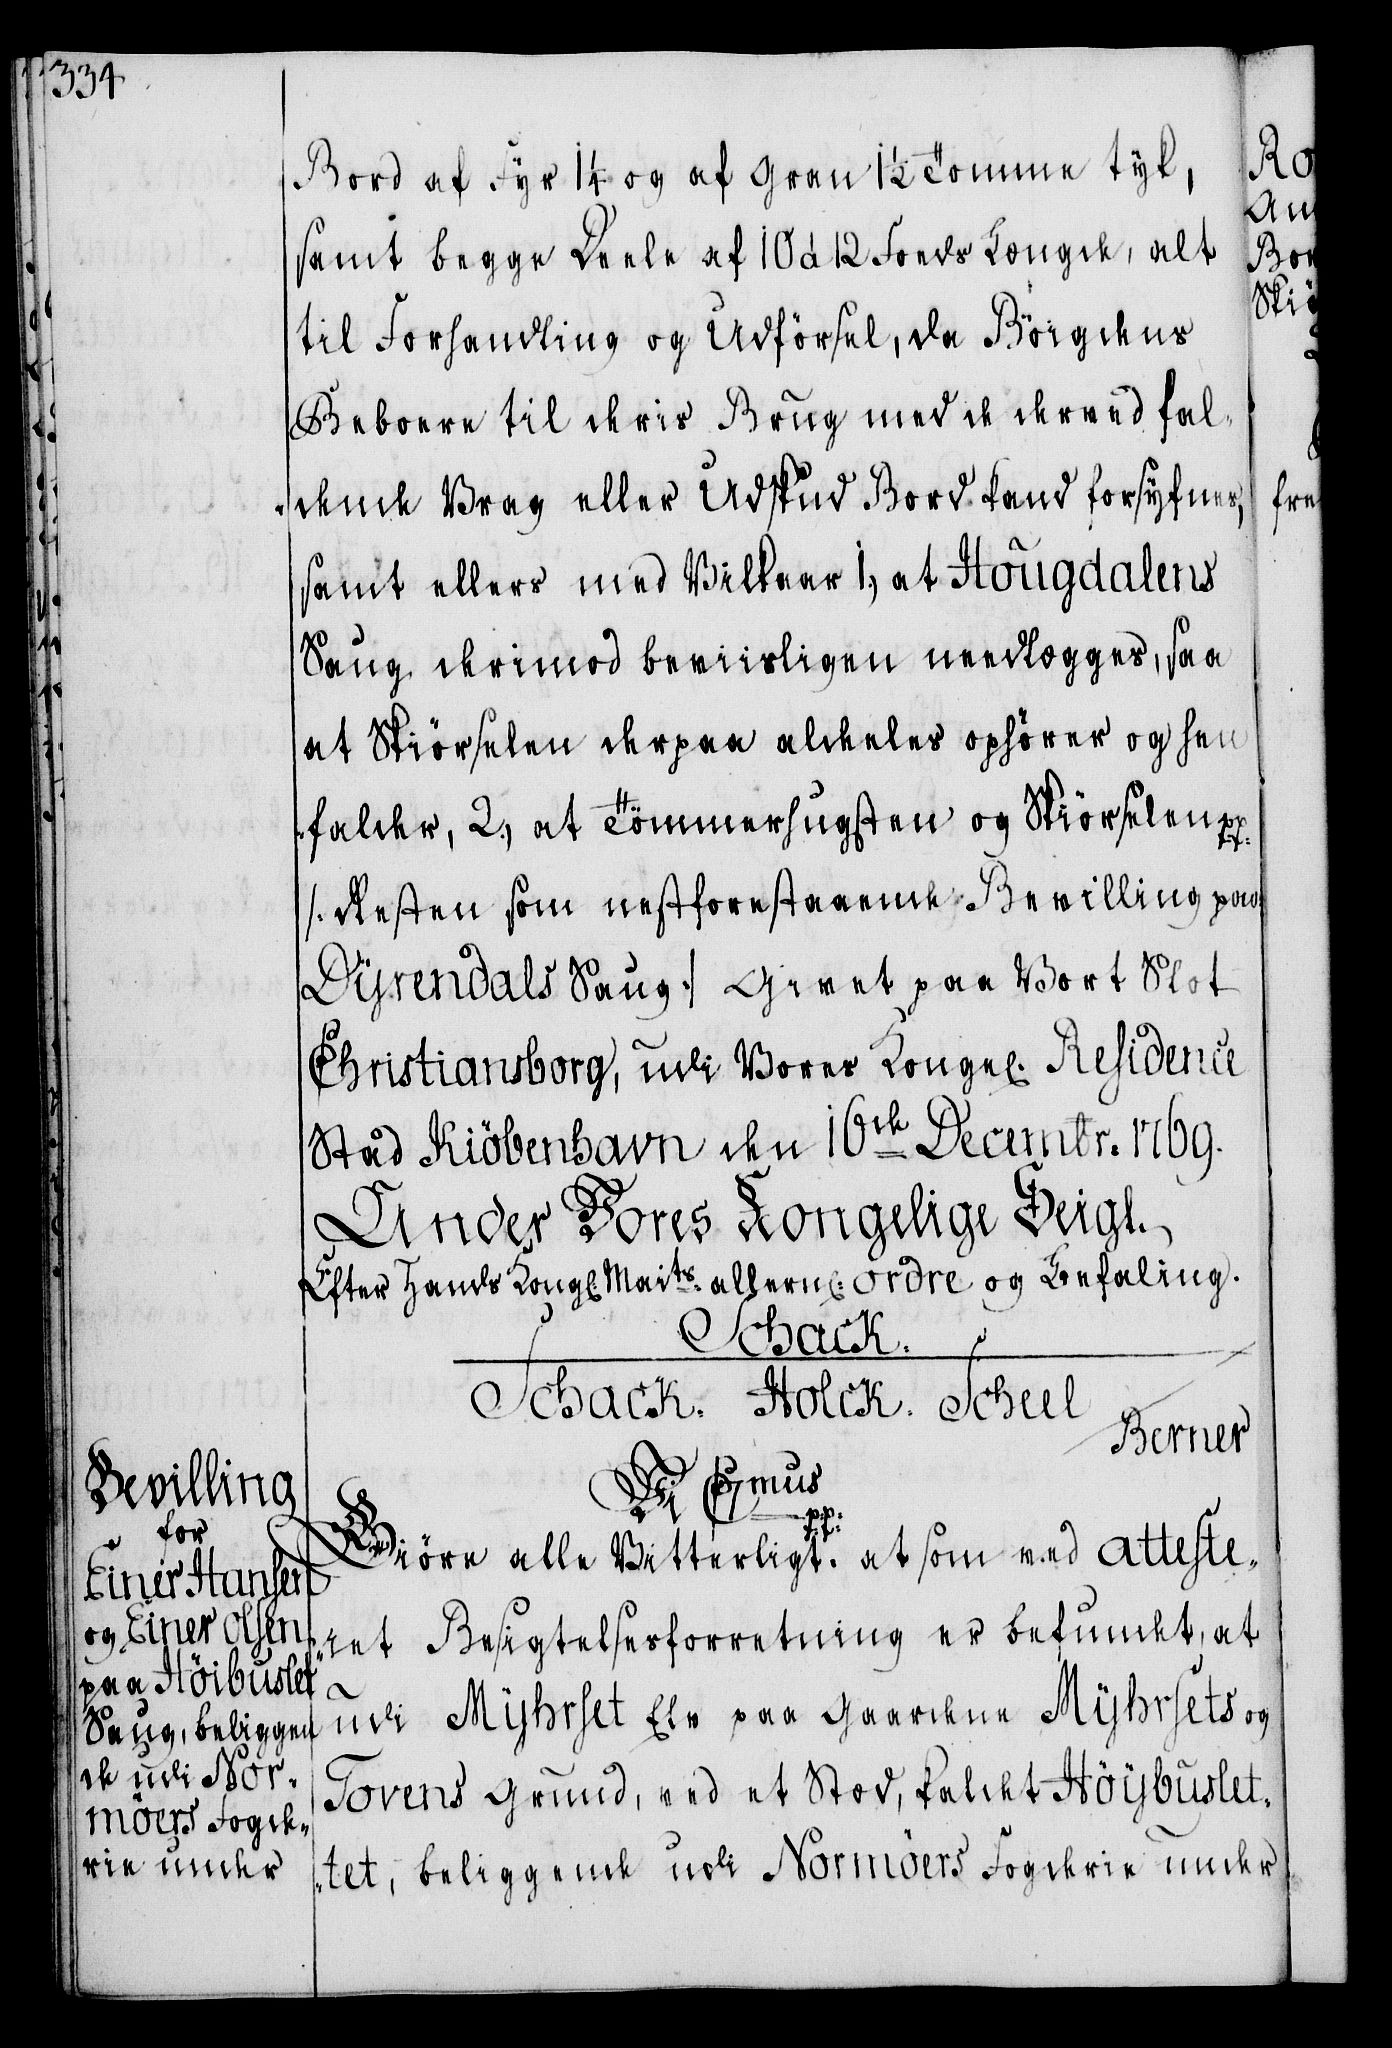 334
Bord af Fyr 1¼ og af Gran 1½ Tomme tyk,
samt begge Deele af 10 à 12 Foeds Længde, alt
til Forhandling og Udförsel, da Böigdens
Beboere til deris Brug med de derved fal-
dende Vrag eller Udskud Bord kand forsyfnes,
samt ellers med Vilkaar 1, at Hougdalens
Saug derimod beviisligen needlægges, saa
at Skiörselen derpaa aldeles ophörer og hen
falder, 2, at Tömmerhugsten og Skiörselen pp.
/. Resten som nestforestaaende Bevilling paa
Dÿrendals Saug ./ Givet paa Vort Slot
Christiansborg, udi Vores Kongel. Residence
Stad Kiöbenhavn den 16de Decembr. 1769.
Under Vores Kongelige Seigl.
Efter Hands Kongl. Maits. allern. ordre og Befaling.
Schack.
Schack. Holck. Scheel
Berner
Bevilling
for
Einer Hansen
og Einer Olsen
paa Höibuslet
Saug, beliggen
de udi Nor-
möers Fogde-
rie under
Vi C 7mus
pp.
Giöre alle Vitterligt. at som ved atteste-
ret Besigtelsesforretning er befundet, at
udi Mÿhrset Elv paa Gaardene Mÿhrsets og
Tovens Grund, ved et Stod, kaldet Höÿbuslet-
tet, beliggende udi Normöers Fogderie under
Ro
Am
Bor
Skiö
fre